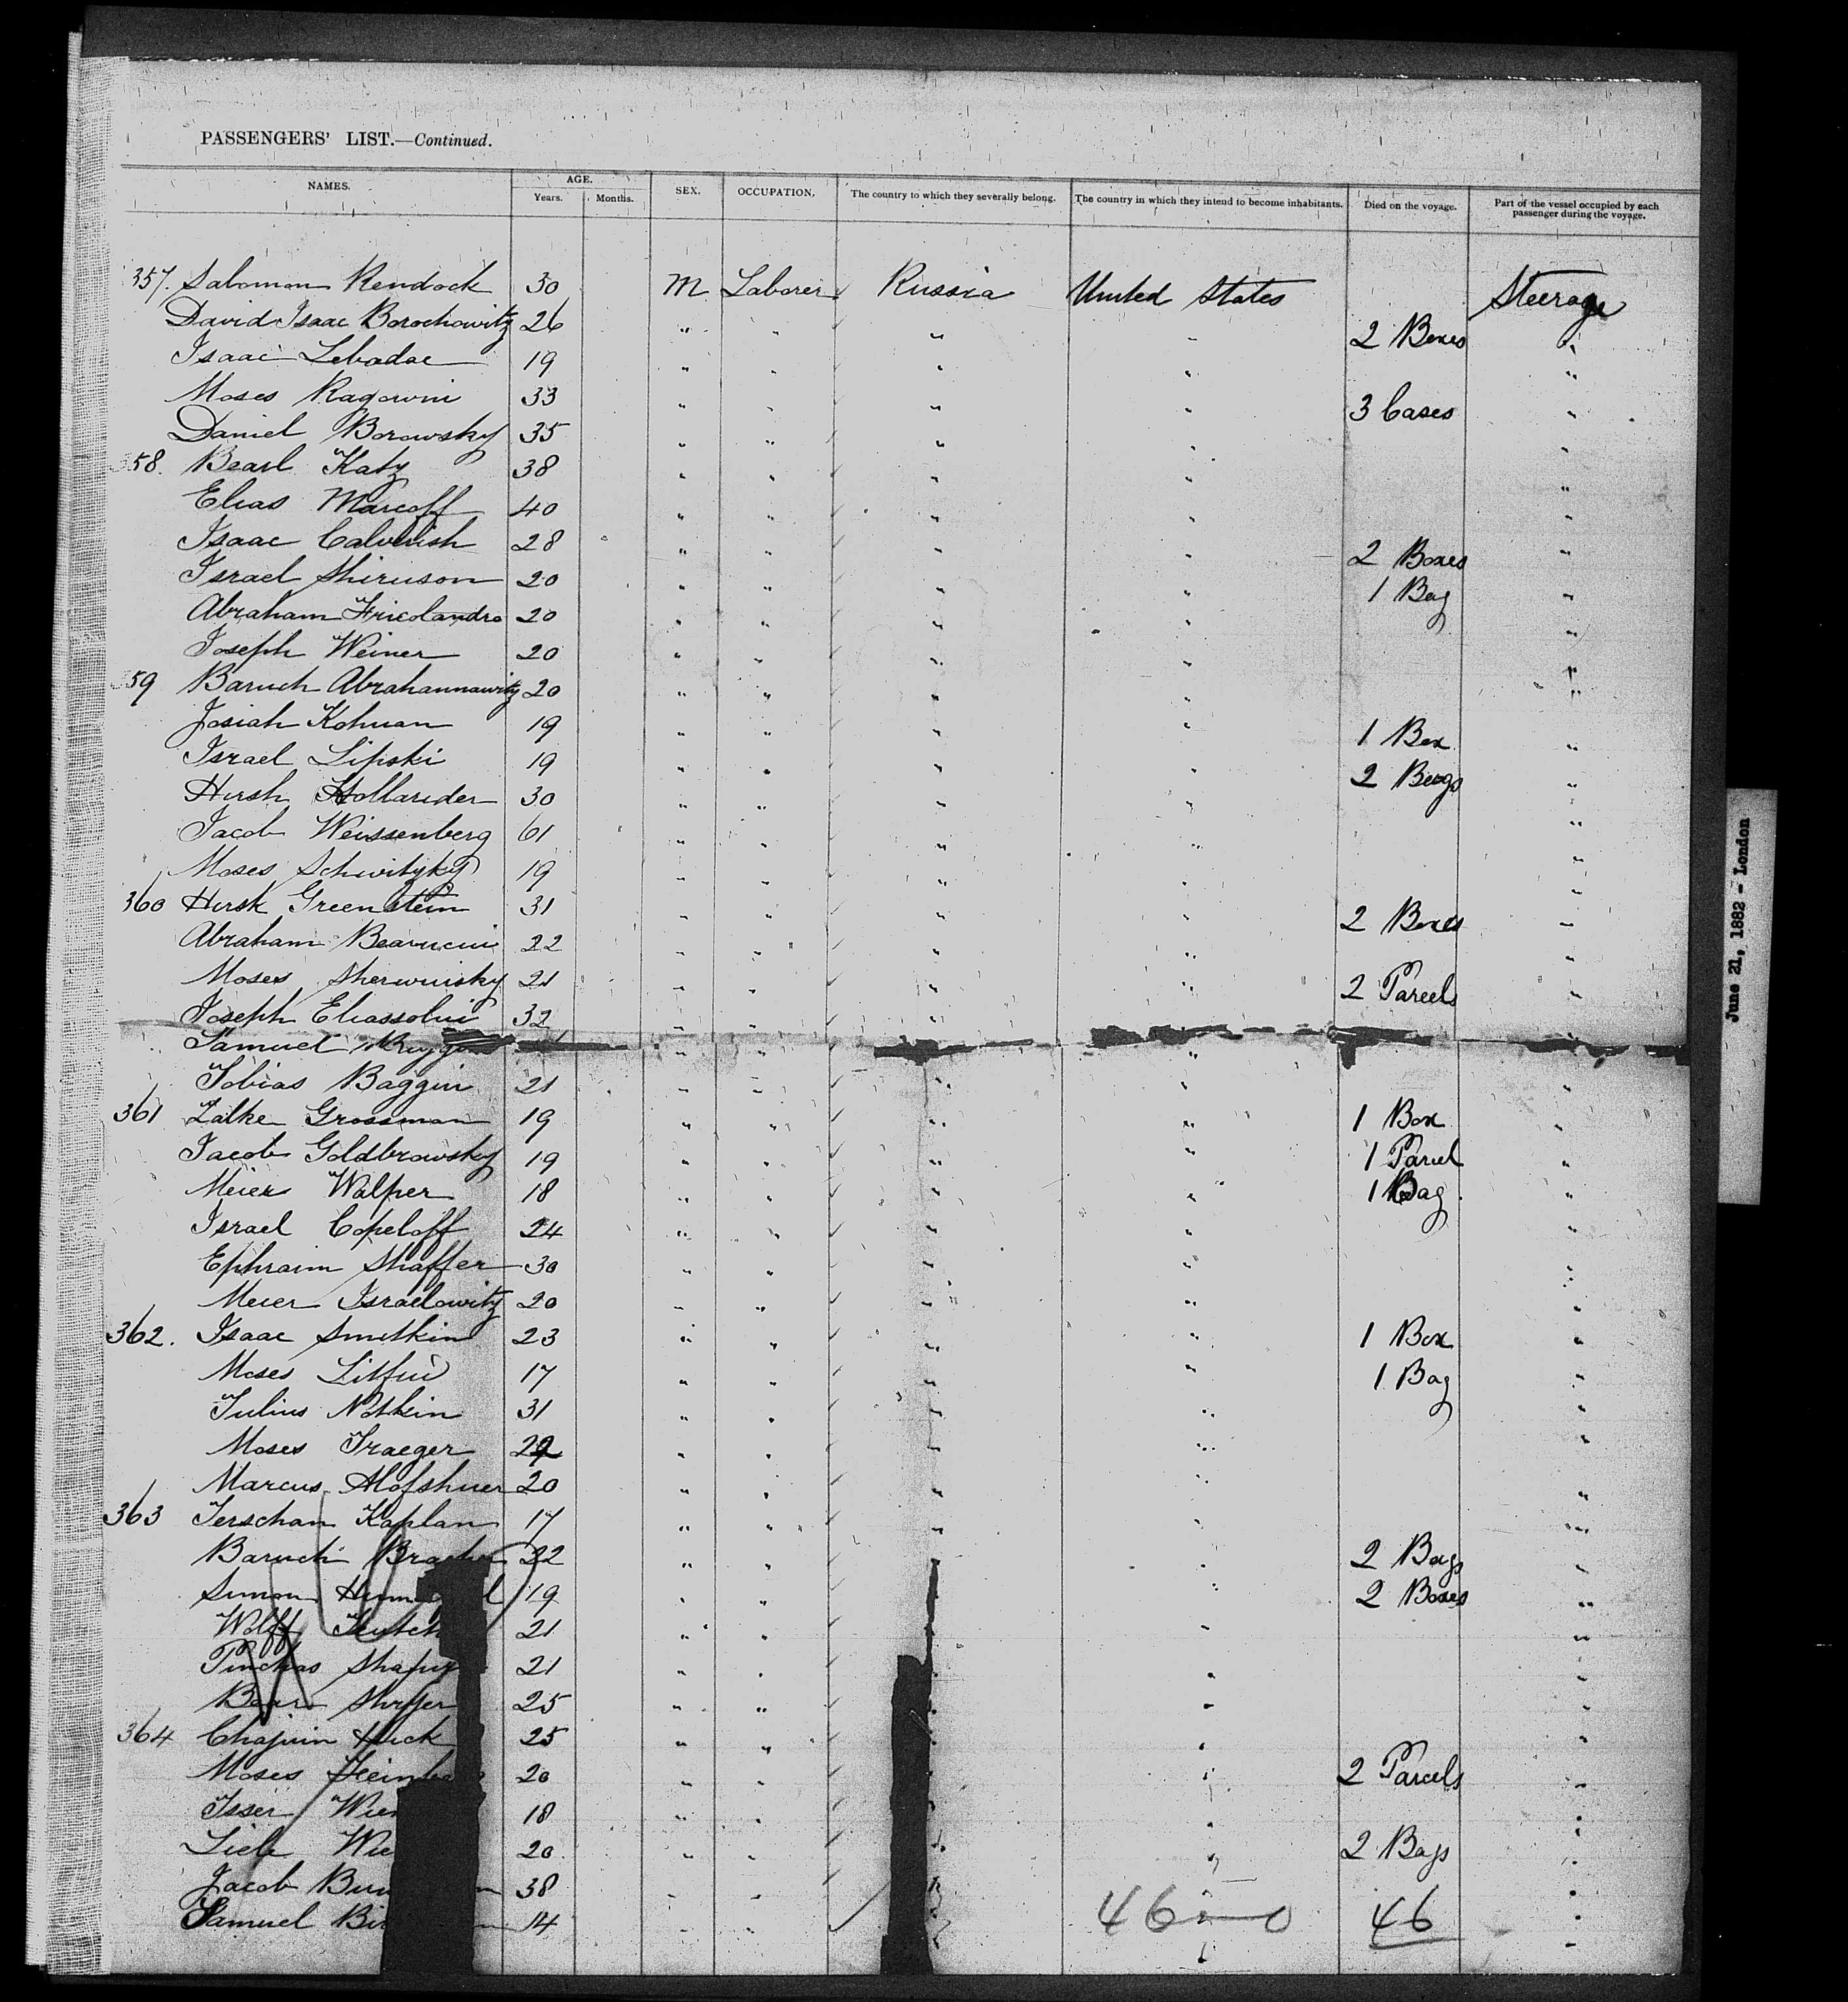 PASSENGERS' LIST.—Continued.
NAMES. AGE. Years. Months. SEX. OCCUPATION. The country to which they severally belong. The country in which they intend to become inhabitants. Died on the voyage. Part of the vessel occupied by each passenger during the voyage.
357. Salomon Kendock 30 M Laborer Russia United States Steerage
David Isaac Borochowitz 26 " " " " 2 Boxes "
Isaac Lebadae 19 " " " " "
Moses Ragowin 33 " " " " 3 Cases "
Daniel Borowsky 35 " " " " "
58. Bearl Katz 38 " " " " "
Elias Marcoff 40 " " " " "
Isaac Calverish 28 " " " " 2 Boxes "
Israel Shiruson 20 " " " " 1 Bag "
Abraham Fricolandra 20 " " " " "
Joseph Weiner 20 " " " " "
59 Baruch Abrahannawitz 20 " " " " "
Josiah Kohuan 19 " " " " 1 Box "
Israel Lipski 19 " " " " 2 Bags "
Hirsh Hollander 30 " " " " "
Jacob Weissenberg 61 " " " " "
Moses Schwityky 19 " " " " "
360 Hirsk Greenstein 31 " " " " 2 Boxes "
Abraham 22 " " " " "
Moses Sherwinsky 21 " " " " 2 Parcels "
Joseph Eliassohn 32 " " " " "
Samuel " " " "
Tobias Baggin 21 " " " " "
361 Zalke Grossman 19 " " " " 1 Box "
Jacob Goldbrowsky 19 " " " " 1 Parcel "
Meier Walper 18 " " " " 1 Bag "
Israel Copeloff 24 " " " " "
Ephraim Shaffer 30 " " " " "
Meier Israelowitz 20 " " " " "
362. Isaac Smetkin 23 " " " " 1 Box "
Moses Litfin 17 " " " " 1 Bag "
Julius Notkin 31 " " " " "
Moses Traeger " " " " "
Marcus Hofshner 20 " " " " "
363 Jerschan Kaplan 17 " " " " "
Baruch 22 " " " " 2 Bags "
Simon 19 " " " " 2 Boxes "
Wolff 21 " " " " "
Pinchas 21 " " " " "
25 " " " " "
364 Chajim 25 " " " " "
Moses 20 " " " " 2 Parcels "
Isser 18 " " " " "
20 " " " " 2 Bags "
Jacob 38 " " " " "
Samuel 14 " " " " "
46 — 0 46
June 21, 1882 - London